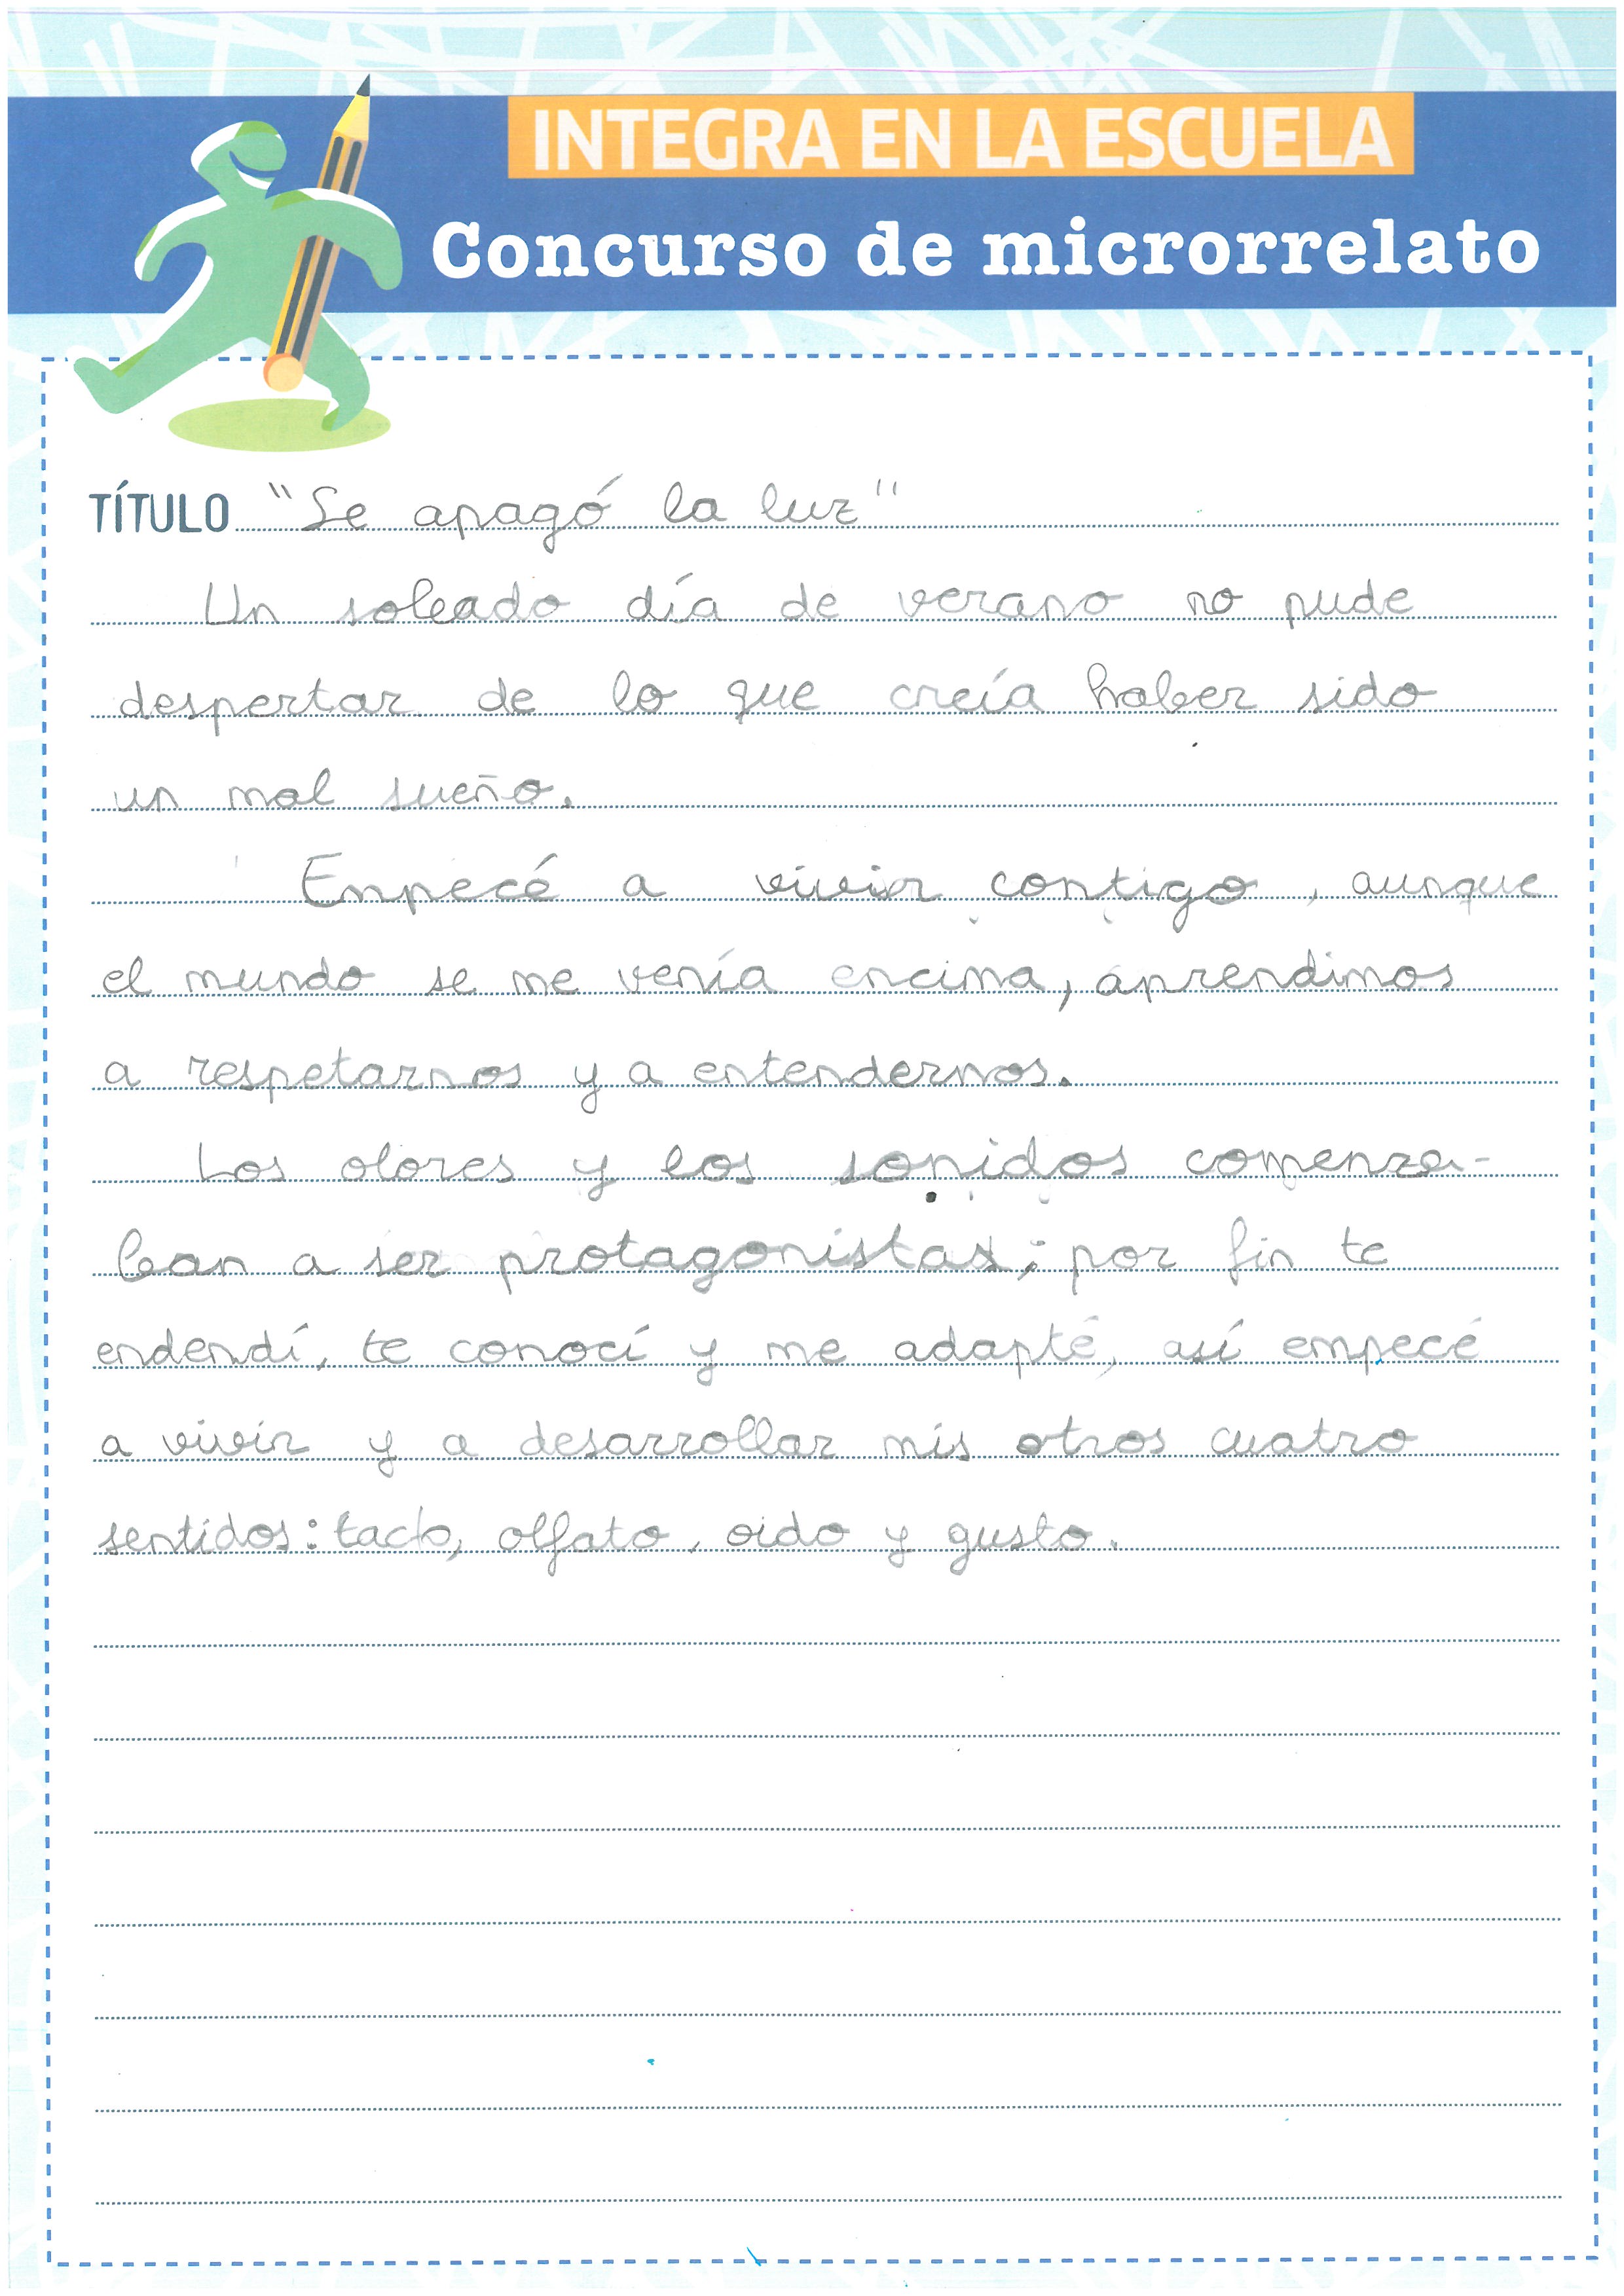 INTEGRA EN LA ESCUELA
Concurso de microrrelato
TÍTULO "Se apagó la luz"
Un soleado día de verano no pude
despertar de lo que creía haber sido
un mal sueño.
Empecé a vivir contigo, aunque
el mundo se me venía encima, aprendimos
a respetarnos y a entendernos.
Los olores y los sonidos comenza-
ban a ser protagonistas; por fin te
endendí, te conocí y me adapté, así empecé
a vivir y a desarrollar mis otros cuatro
sentidos: tacto, olfato, oido y gusto.